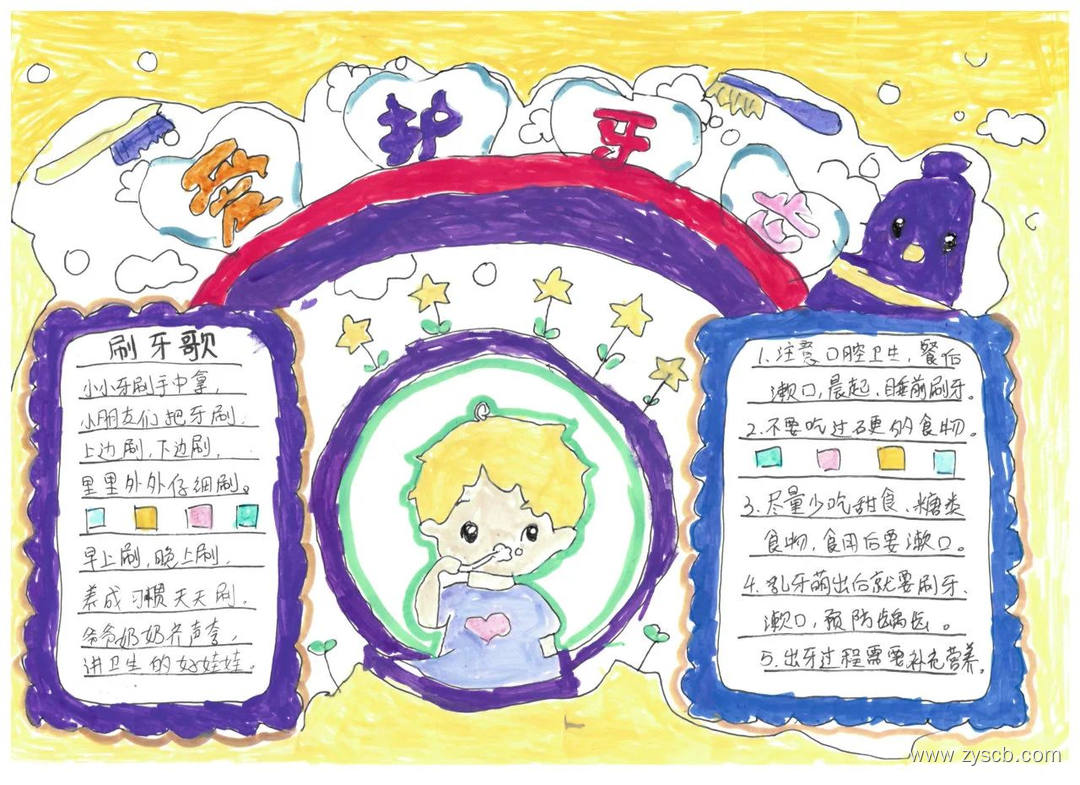 爱护牙齿
刷牙歌
小小牙刷手中拿,
小朋友们把牙刷,
上边刷,下边刷,
里里外外仔细刷。
早上刷,晚上刷,
养成习惯天天刷,
爷爷奶奶齐声夸,
讲卫生的好娃娃。
1.注意口腔卫生,餐后
漱口,晨起、睡前刷牙。
2.不要吃过硬的食物。
3.尽量少吃甜食、糖类
食物,食用后要漱口。
4.乳牙萌出后就要刷牙、
漱口,预防龋齿。
5.出牙过程需要补充营养。
www.zyscb.com